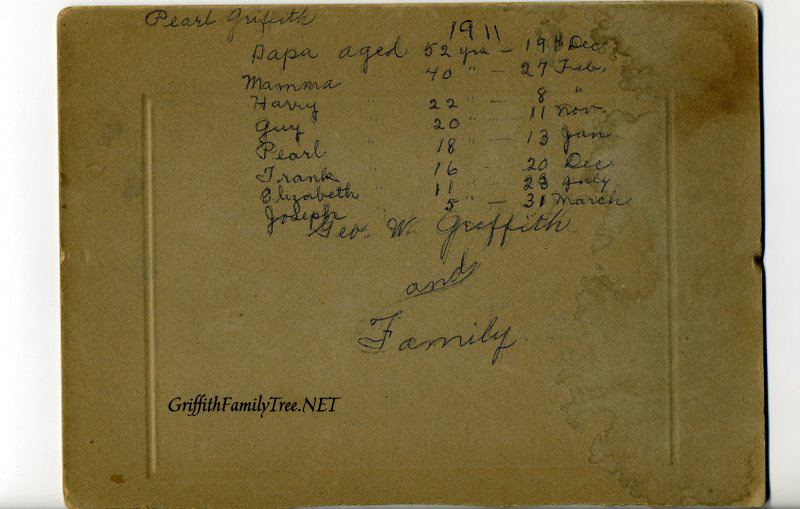 Pearl Griffith
1911
Papa aged 52 yrs — 19" Dec.
Mamma " 40 " — 27 Feb.
Harry " 22 " — 8 "
Guy " 20 " — 11 Nov.
Pearl " 18 " — 13 Jan
Frank " 16 " — 20 Dec.
Elizabeth " 11 " — 23 July
Joseph 5 " — 31 March
Geo. W. Griffith
and
Family
GriffithFamilyTree.NET